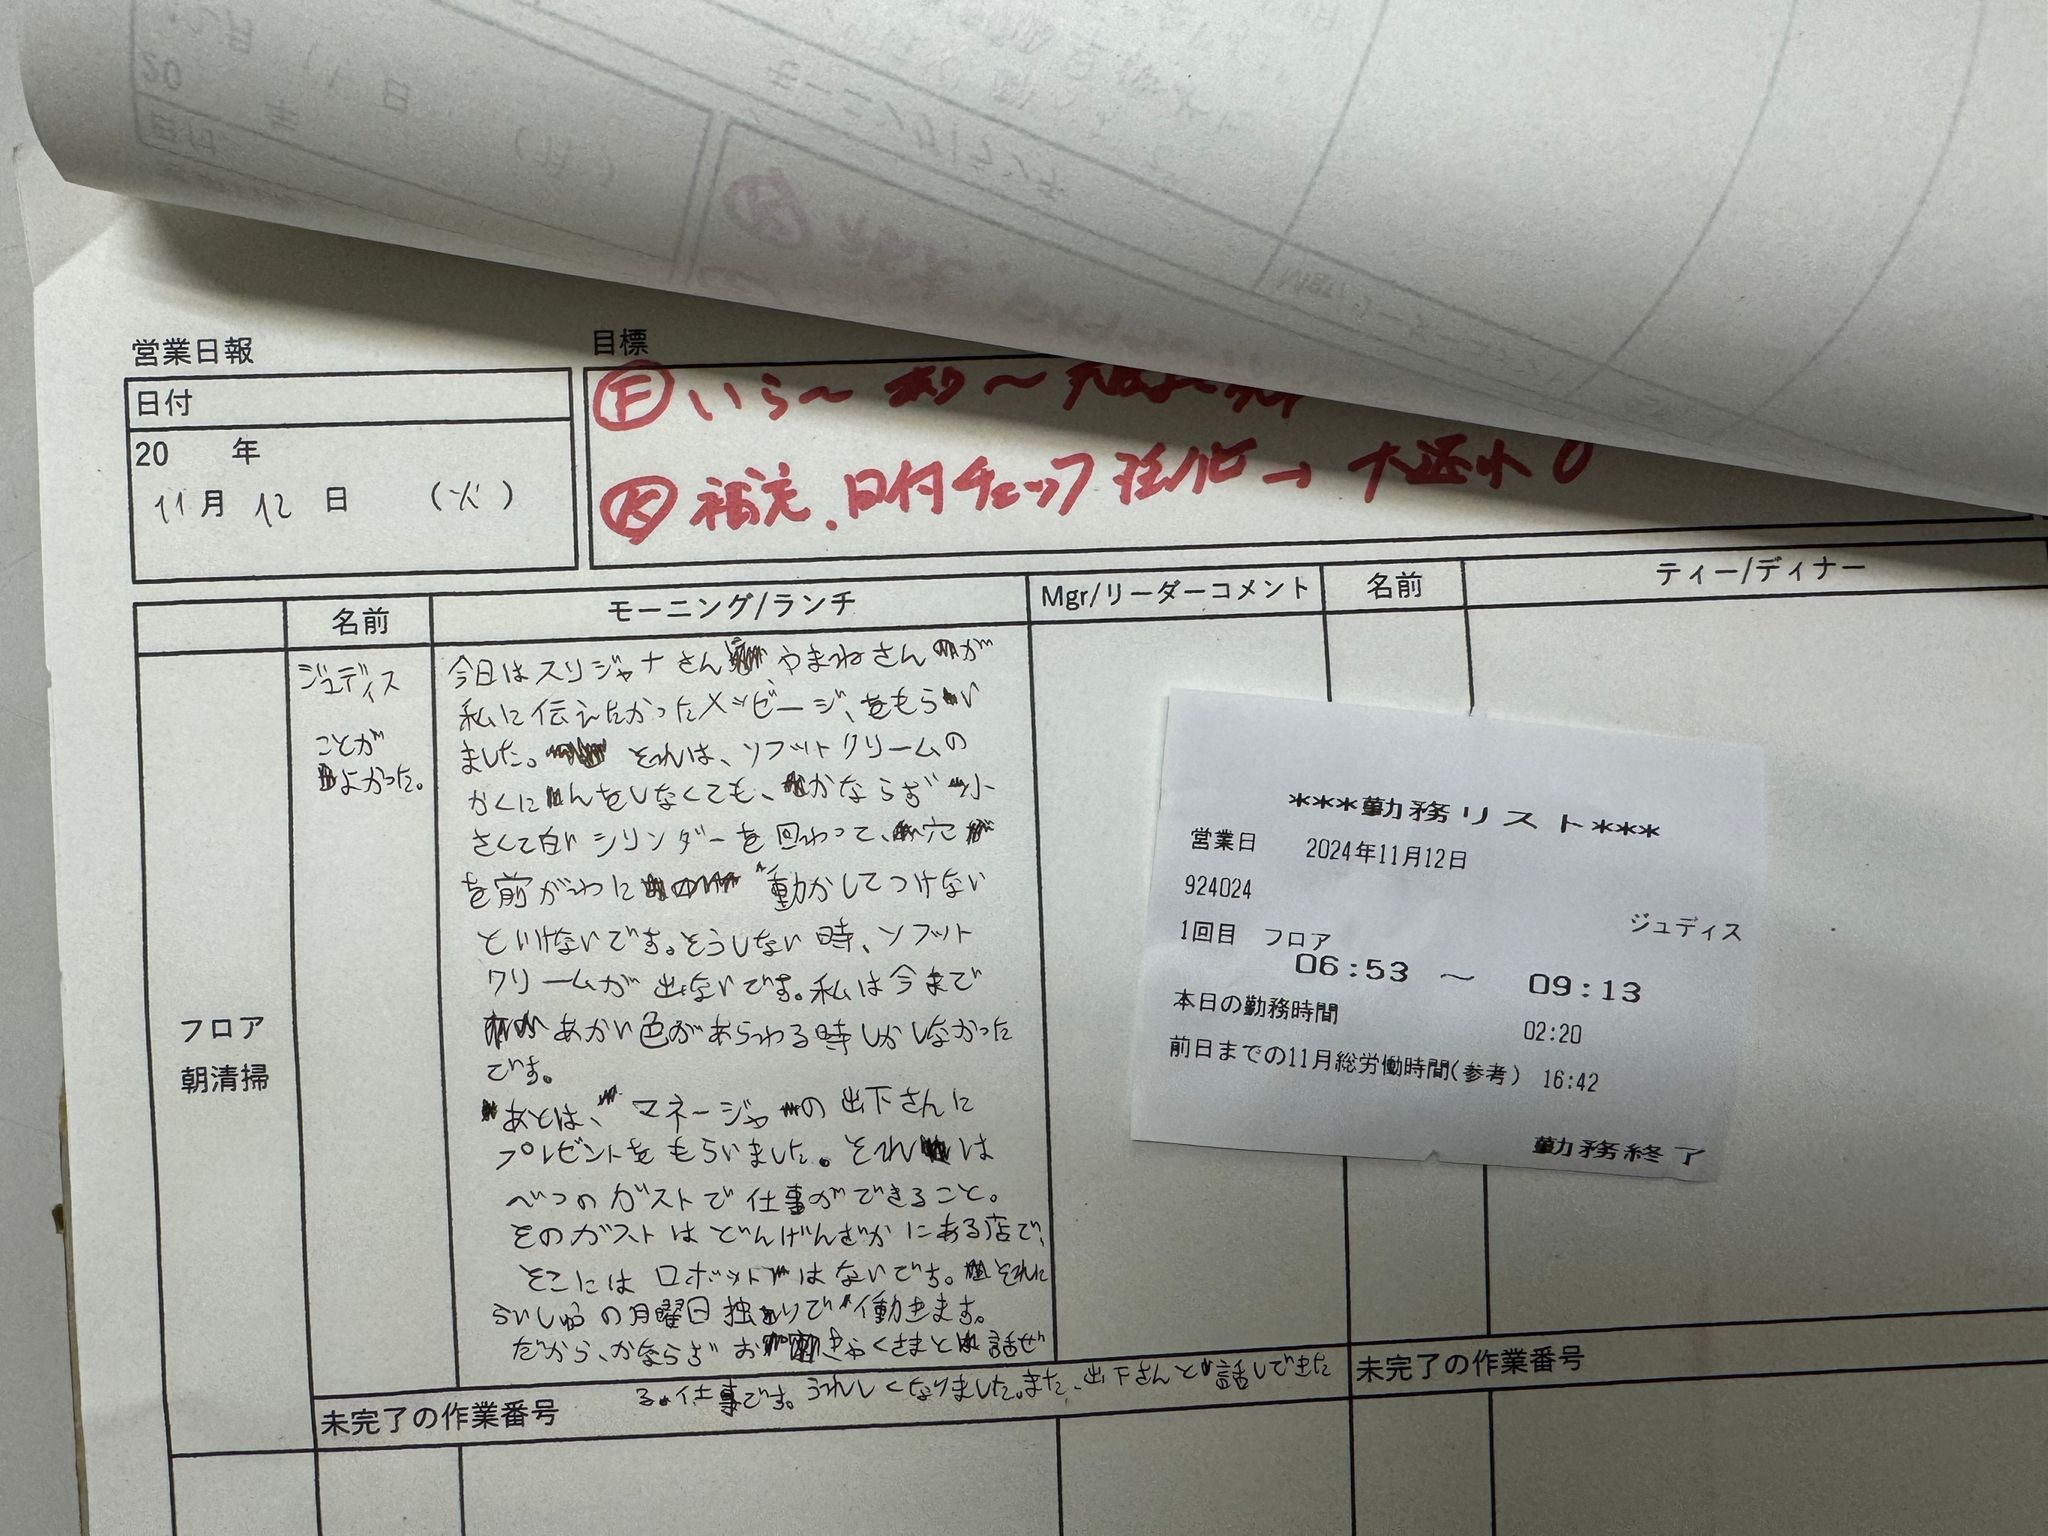 営業日報
日付
20 年
11月 12日 (火)
目標
Ⓕ いら〜 あり〜
Ⓚ 補充、日付チェック
名前
モーニング/ランチ
Mgr/リーダーコメント
名前
ティー/ディナー
フロア
朝清掃
ジュディス
今日はスリジャナさん やまねさんが
私に伝えたかったメッセージ、をもらい
ました。それは、ソフットクリームの
かくにんをしなくても、かならず小
さくて白いシリンダーを回わって、穴
を前がわに動かしてつけない
といけないです。そうしない時、ソフット
クリームが出ないです。私は今まで
あかい色があらわる時しかしなかった
です。
あとは、マネージャの出下さんに
プレゼントをもらいました。それは
べつのガストで仕事ができること。
そのガストはどんげんざかにある店で、
そこにはロボットはないです。それに
らいしゅうの月曜日独りで働きます。
だから、かならずおきゃくさまと話せ
る仕事です。うれしくなりました。また、出下さんと話しできた
ことが
よかった。
未完了の作業番号
未完了の作業番号
***勤務リスト***
営業日 2024年11月12日
924024
ジュディス
1回目 フロア
06:53 ～ 09:13
本日の勤務時間 02:20
前日までの11月総労働時間(参考) 16:42
勤務終了